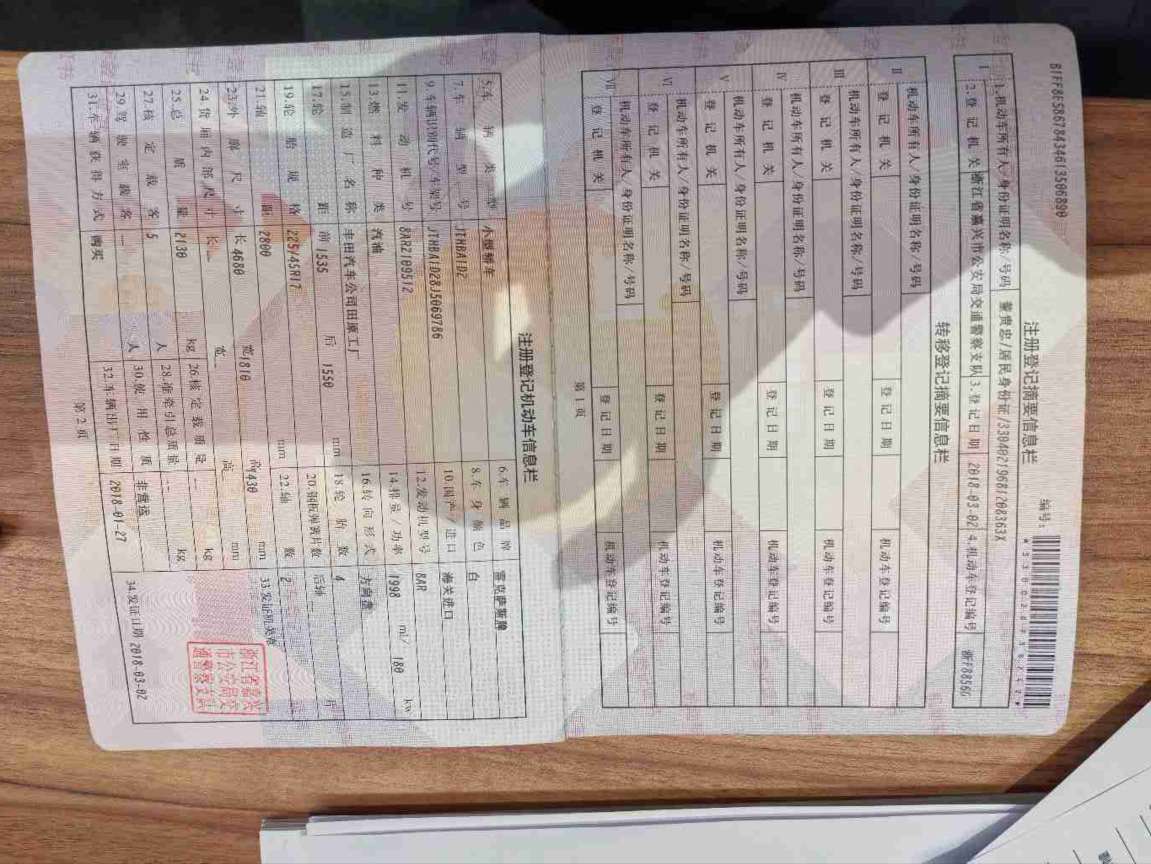 B1FF8E58678434613506890
注册登记摘要信息栏
编号:
I
1.机动车所有人/身份证明名称/号码 董贯忠/居民身份证/33040219681208363X
2.登记机关 浙江省嘉兴市公安局交通警察支队 3.登记日期 2018-03-02 4.机动车登记编号 浙FF8856
转移登记摘要信息栏
II
机动车所有人/身份证明名称/号码
登记机关 登记日期 机动车登记编号
III
机动车所有人/身份证明名称/号码
登记机关 登记日期 机动车登记编号
IV
机动车所有人/身份证明名称/号码
登记机关 登记日期 机动车登记编号
V
机动车所有人/身份证明名称/号码
登记机关 登记日期 机动车登记编号
VI
机动车所有人/身份证明名称/号码
登记机关 登记日期 机动车登记编号
VII
机动车所有人/身份证明名称/号码
登记机关 登记日期 机动车登记编号
第 1 页
注册登记机动车信息栏
5.车辆类型 小型轿车 6.车辆品牌 雷克萨斯牌
7.车辆型号 JTHBA1D2 8.车身颜色 白
9.车辆识别代号/车架号 JTHBA1D28J5069786 10.国产/进口 海关进口
11.发动机号 8AR2109512 12.发动机型号 8AR
13.燃料种类 汽油 14.排量/功率 1998 ml/ 180 kw
15.制造厂名称 丰田汽车公司田原工厂 16.转向形式 方向盘
17.轮距 前 1535 后 1550 mm 18.轮胎数 4
19.轮胎规格 225/45R17 20.钢板弹簧片数 后轴 -- 片
21.轴距 2800 mm 22.轴数 2
23.外廓尺寸 长 4680 宽 1810 高 1430 mm 33.发证机关章
24.货厢内部尺寸 长 -- 宽 -- 高 -- mm
25.总质量 2130 kg 26.核定载质量 -- kg
27.核定载客 5 人 28.准牵引总质量 -- kg
29.驾驶室载客 -- 人 30.使用性质 非营运
31.车辆获得方式 购买 32.车辆出厂日期 2018-01-27
34.发证日期 2018-03-02
浙江省嘉兴
市公安局交
通警察支队
第 2 页